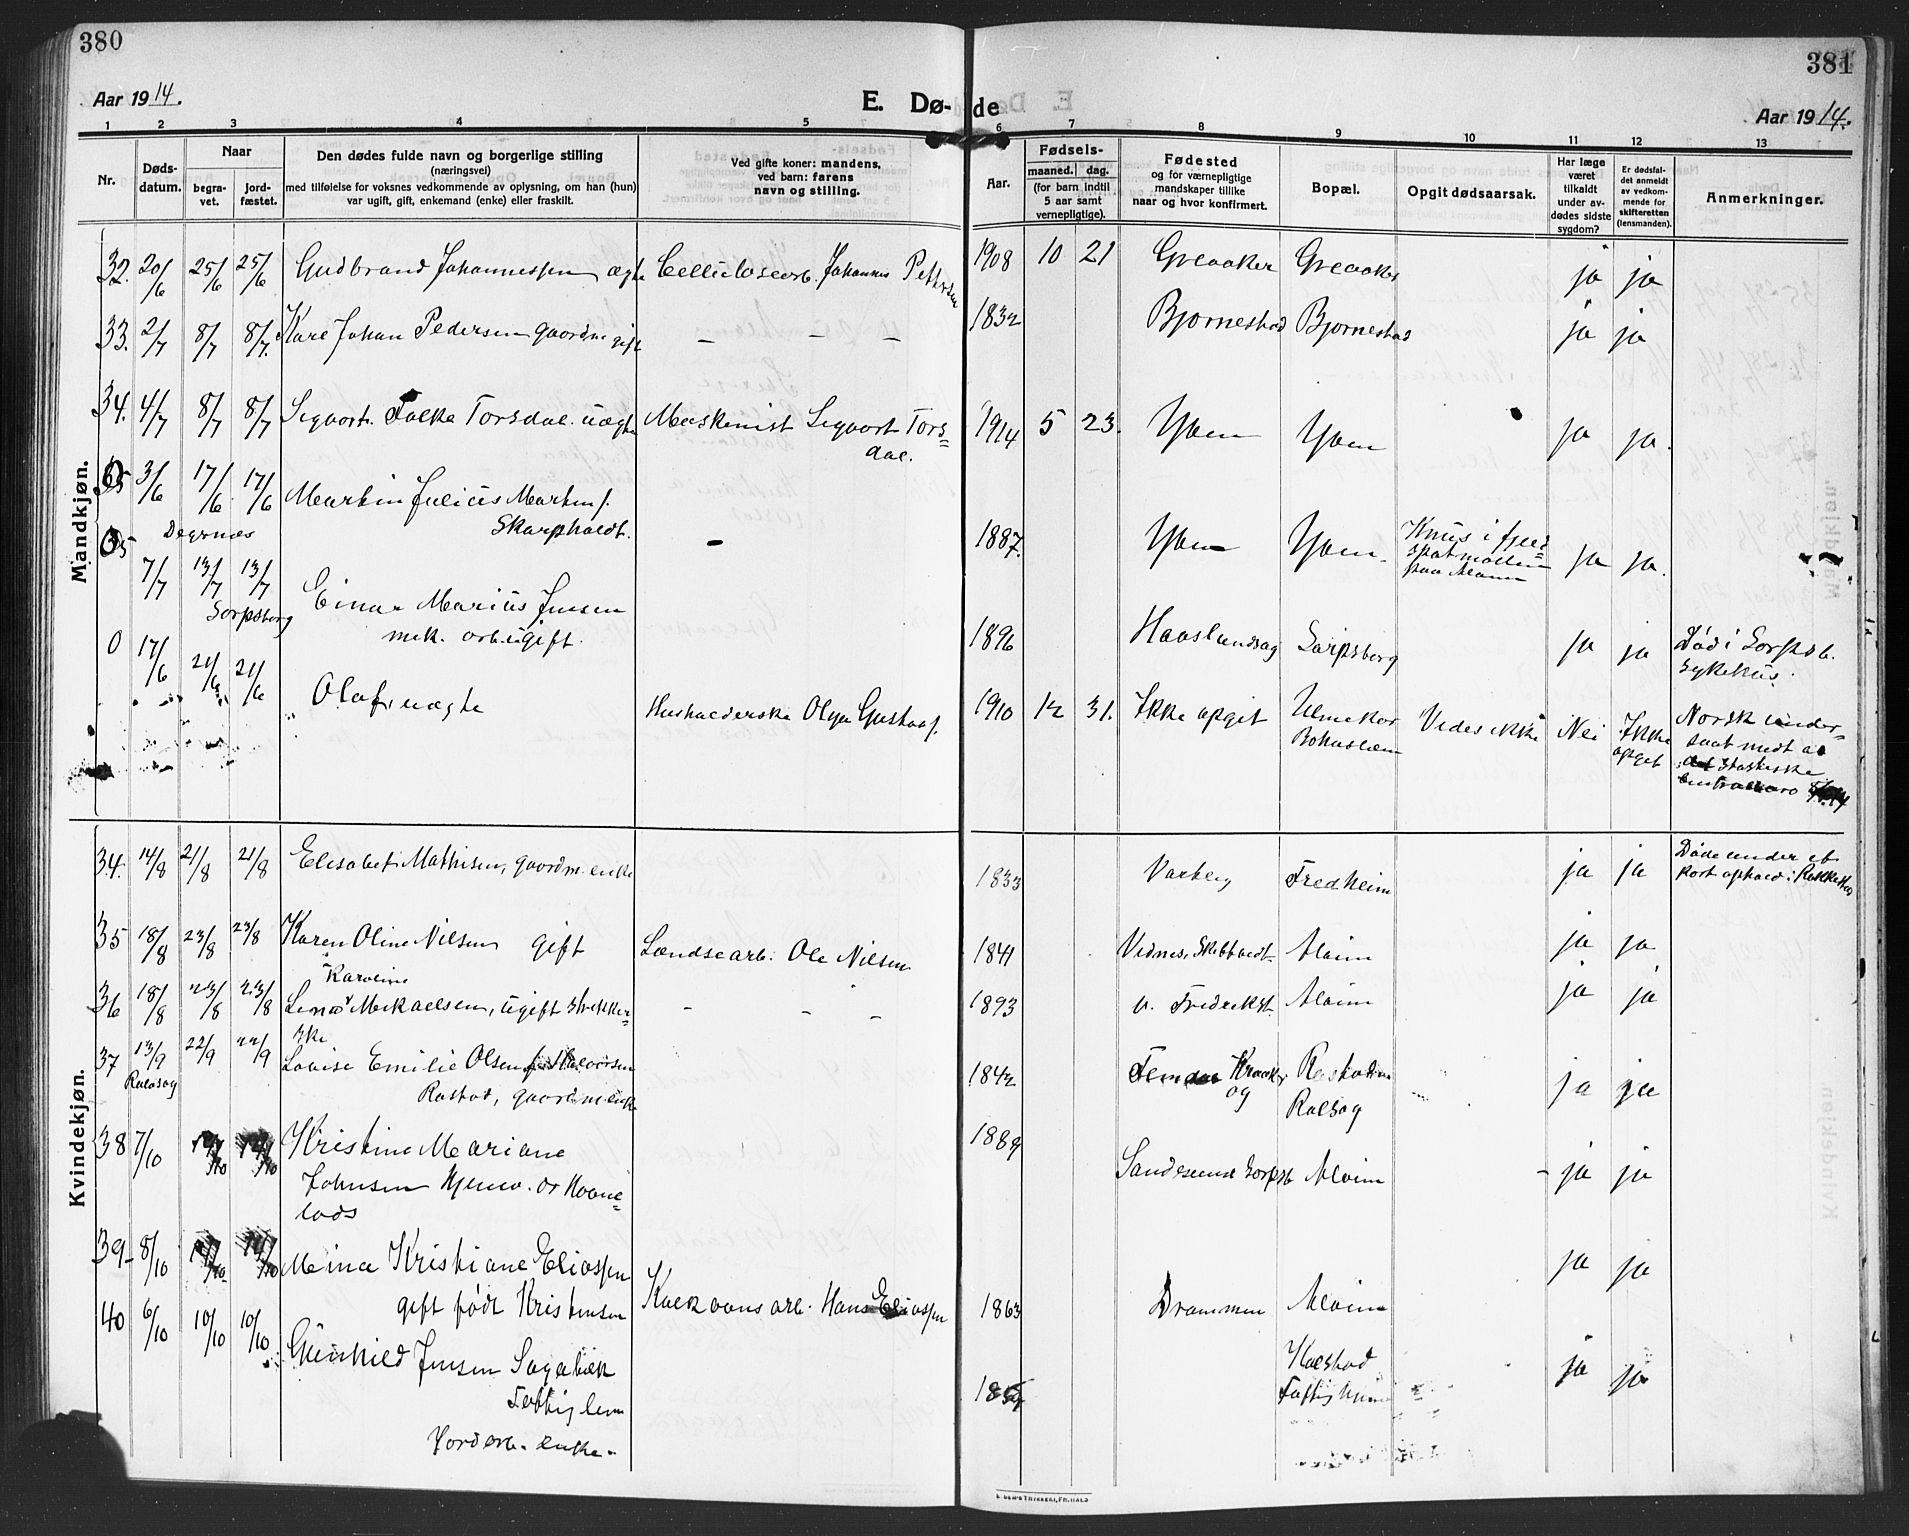 380
381
Aar 1914.
E. Dø-
de
Aar 1914.
1 2 3 4 5 6 7 8 9 10 11 12 13
Nr.
Døds-
datum.
Naar
begra-
vet.
jord-
fæstet.
Den dødes fulde navn og borgerlige stilling
(næringsvei)
med tilføielse for voksnes vedkommende av oplysning, om han (hun)
var ugift, gift, enkemand (enke) eller fraskilt.
Ved gifte koner: mandens,
ved barn: farens
navn og stilling.
Aar.
Fødsels-
maaned. dag.
(for barn indtil
5 aar samt
vernepligtige).
Fødested
og for værnepligtige
mandskaper tillike
naar og hvor konfirmert.
Bopæl.
Opgit dødsaarsak.
Har læge
været
tilkaldt
under av-
dødes sidste
sygdom?
Er dødsfal-
det anmeldt
av vedkom-
mende for
skifteretten
(lensmanden).
Anmerkninger.
Mandkjøn.
32. 20/6 25/6 25/6 Gudbrand Johannessen ægte Celluloseorb. Johannes Pettersen 1908 10 21 Greaaker Greaaker ja ja
33. 2/7 8/7 8/7. Kare Johan Pedersen gaardm gift – – – 1832 Bjørnestad Bjørnestad ja ja
34. 4/7 8/7 8/7 Sigvart Falke Torsdal. uægte Maskinist Sigvart Tors=
dal. 1914 5 23. Yven Yven ja ja.
35 3/6 17/6 17/6 Martin Julius Martins.
Degrnæs Skarpholdt. – 1887. Yven Yven. Knus i feld=
spatmøllen
paa Alvim ja ja.
7/7 13/7 13/7 Einar Marius Jensen
Sarpsborg mek. arb. ugift. 1896 Haslundsøg Sarpsborg ja ja Død i Sarpsb.
sykehus.
0 17/6 21/6 21/6 Olaf, uægte Husholderske Olga Gustafs. 1910 12 31. Ikke opgit Bohuslæn Vides ikke Nei Ikke
opget Norsk under-
saat medt av
det statistiske
Kvindekjøn.
34. 14/8 21/8 21/8 Elisabet Mathisen, gaardm. enke 1833 Varberg Fredheim ja ja Døde under et
kort ophold i Rakkestad
35 18/8 23/8 23/8 Karen Oline Nilsen gift Landsearb. Ole Nilsen 1841 Vidnes, Skibtvedt. Alvim ja ja
Karoline
36 18/8 23/8 23/8 Lena Mikaelsen, ugift strikker=
ske – – – 1893 v. Fredrikst. Alvim ja ja
37 13/9 22/9 22/9 Lovise Emilie Olsen f. Halvorsen
Rastad, gaardm enke 1842 Kraaker
og Ralsøg ja ja
38 7/10 12/10 12/10 Kristine Mariane
Johnsen Hjemv. av Havne=
lods 1889 Sandesund Sarpsb Alvim – ja ja
39– 8/10 14/10 14/10 Mina Kristiane Eliassen
gift født Kristensen Kalkovns arb. Hans Eliassen 1863 Drammen Alvim ja ja
40 6/10 10/10 10/10 Gunhild Jensen Sagabæk
Fattiglem
enke. Kalstad
ja ja
E. SEM'S TRYKKERI, FR.HALD